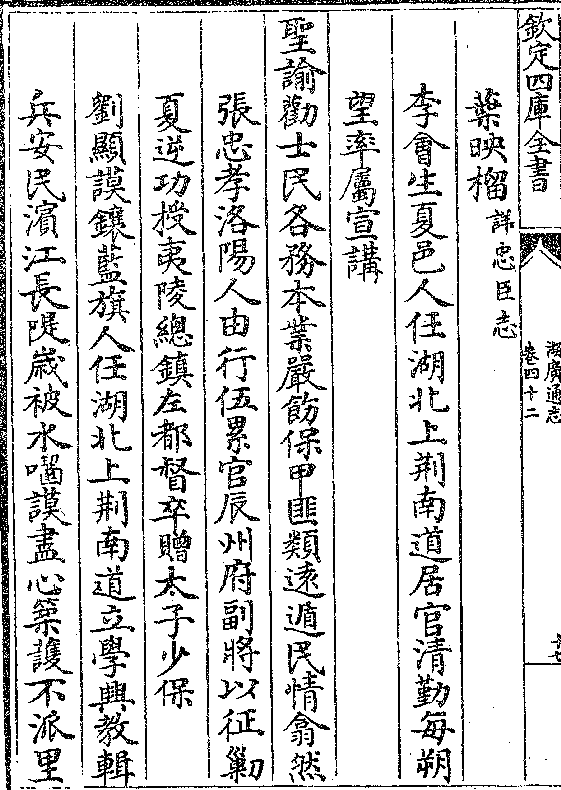 欽定四庫全書
湖廣通志
卷四十二
葉映榴詳忠臣志
李會生夏邑人任湖北上荆南道居官清勤每朔
望率屬宣講
聖諭勸士民各務本業嚴飭保甲匪類遠遁民情翕然
張忠孝洛陽人由行伍累官辰州府副將以征勦
夏逆功授夷陵總鎮左都督卒贈太子少保
劉顯謨鑲藍旗人任湖北上荆南道立學興教輯
兵安民濱江長隄歲被水嚙謨盡心築護不派里